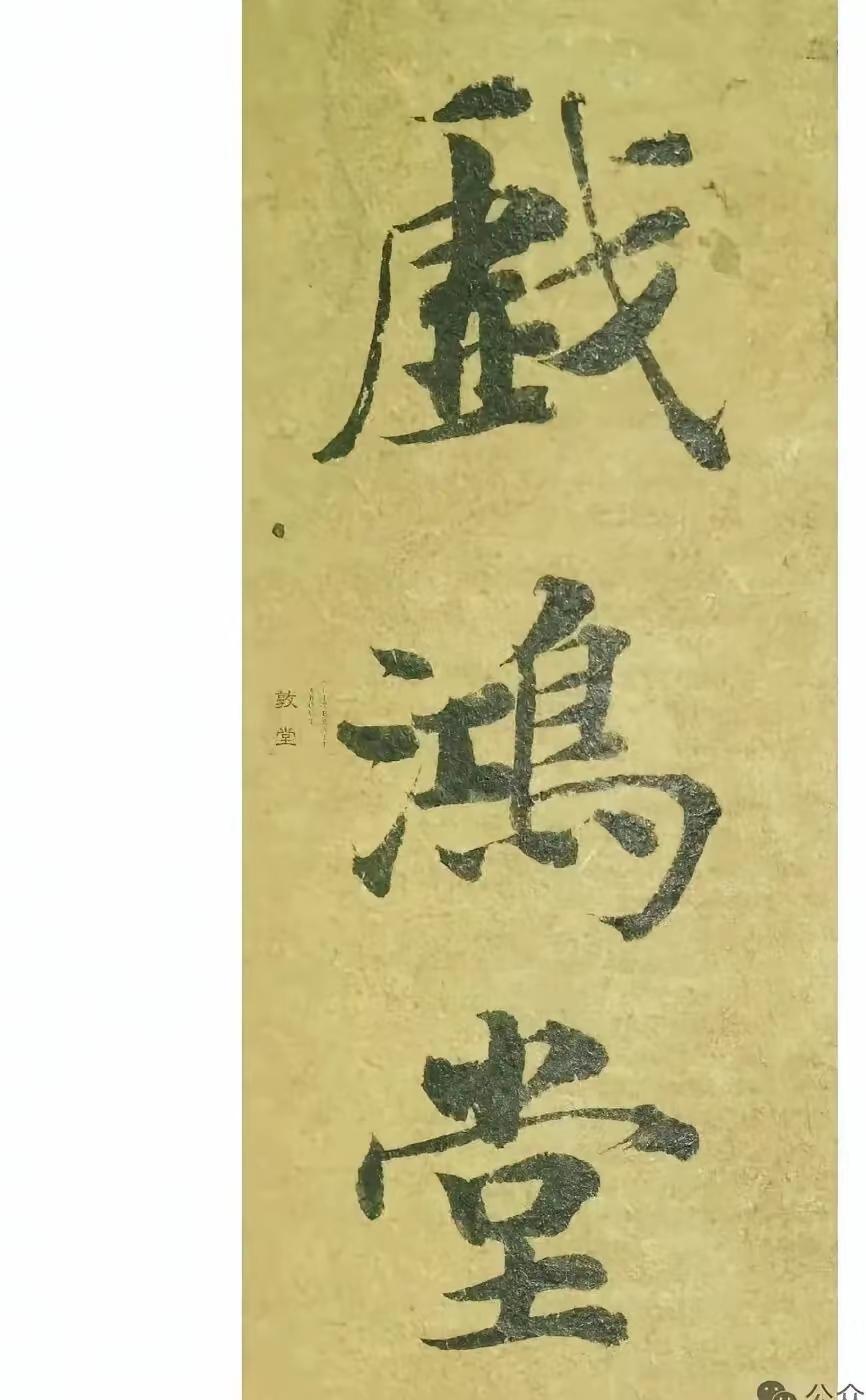 戯鴻堂
敦堂
公众